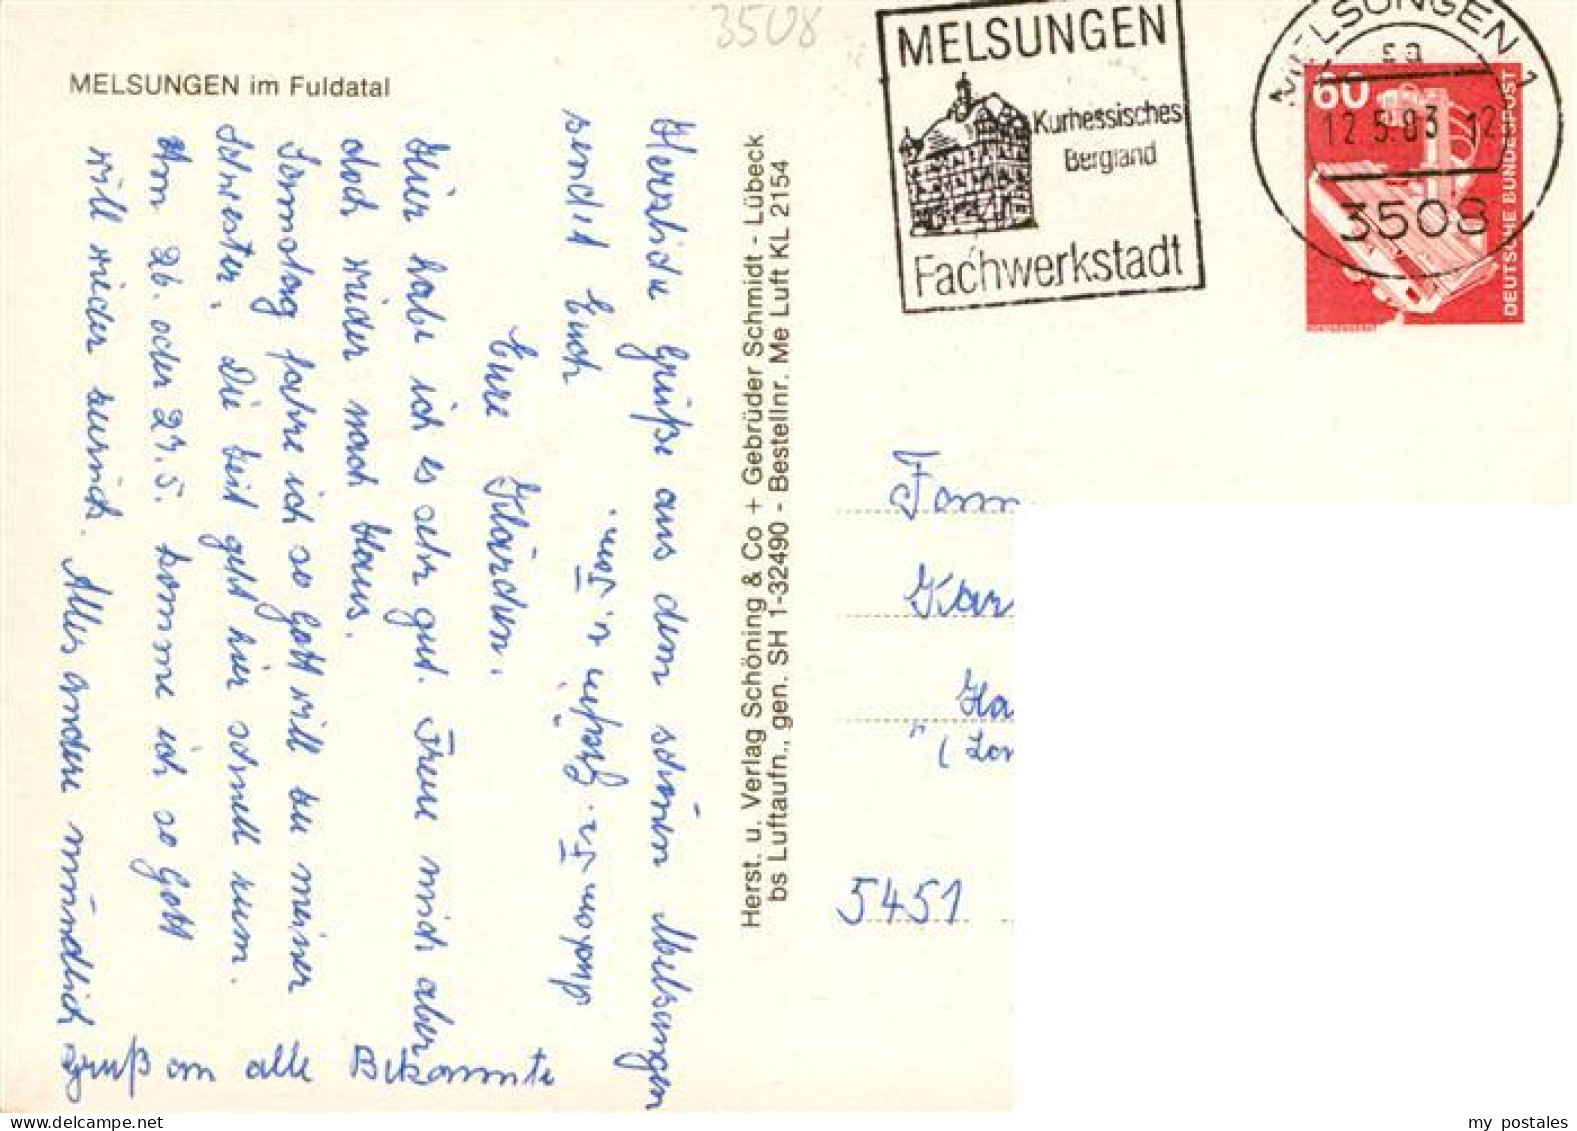 3508
MELSUNGEN im Fuldatal
MELSUNGEN
Kurhessisches
Bergland
Fachwerkstadt
MELSUNGEN 1
sa
12.5.83 12
3508
60
DEUTSCHE BUNDESPOST
Herzliche Grüße aus dem schönen Melsungen
sendet Euch
Eure Klärchen.
Hier habe ich es sehr gut. Freue mich aber
doch wieder nach Haus.
Sonnotag fahre ich so Gott will zu meiner
Schwester. Die Zeit geht hier schnell rum.
Am 26. oder 27.5. komme ich so Gott
will wieder zurück. Alles andere mündlich
gruß an alle Bekannte
Herst. u. Verlag Schöning & Co + Gebrüder Schmidt - Lübeck
bs Luftaufn., gen. SH 1-32490 - Bestellnr. Me Luft KL 2154
Fam
Kar
Ha
(Lon
5451
my postales